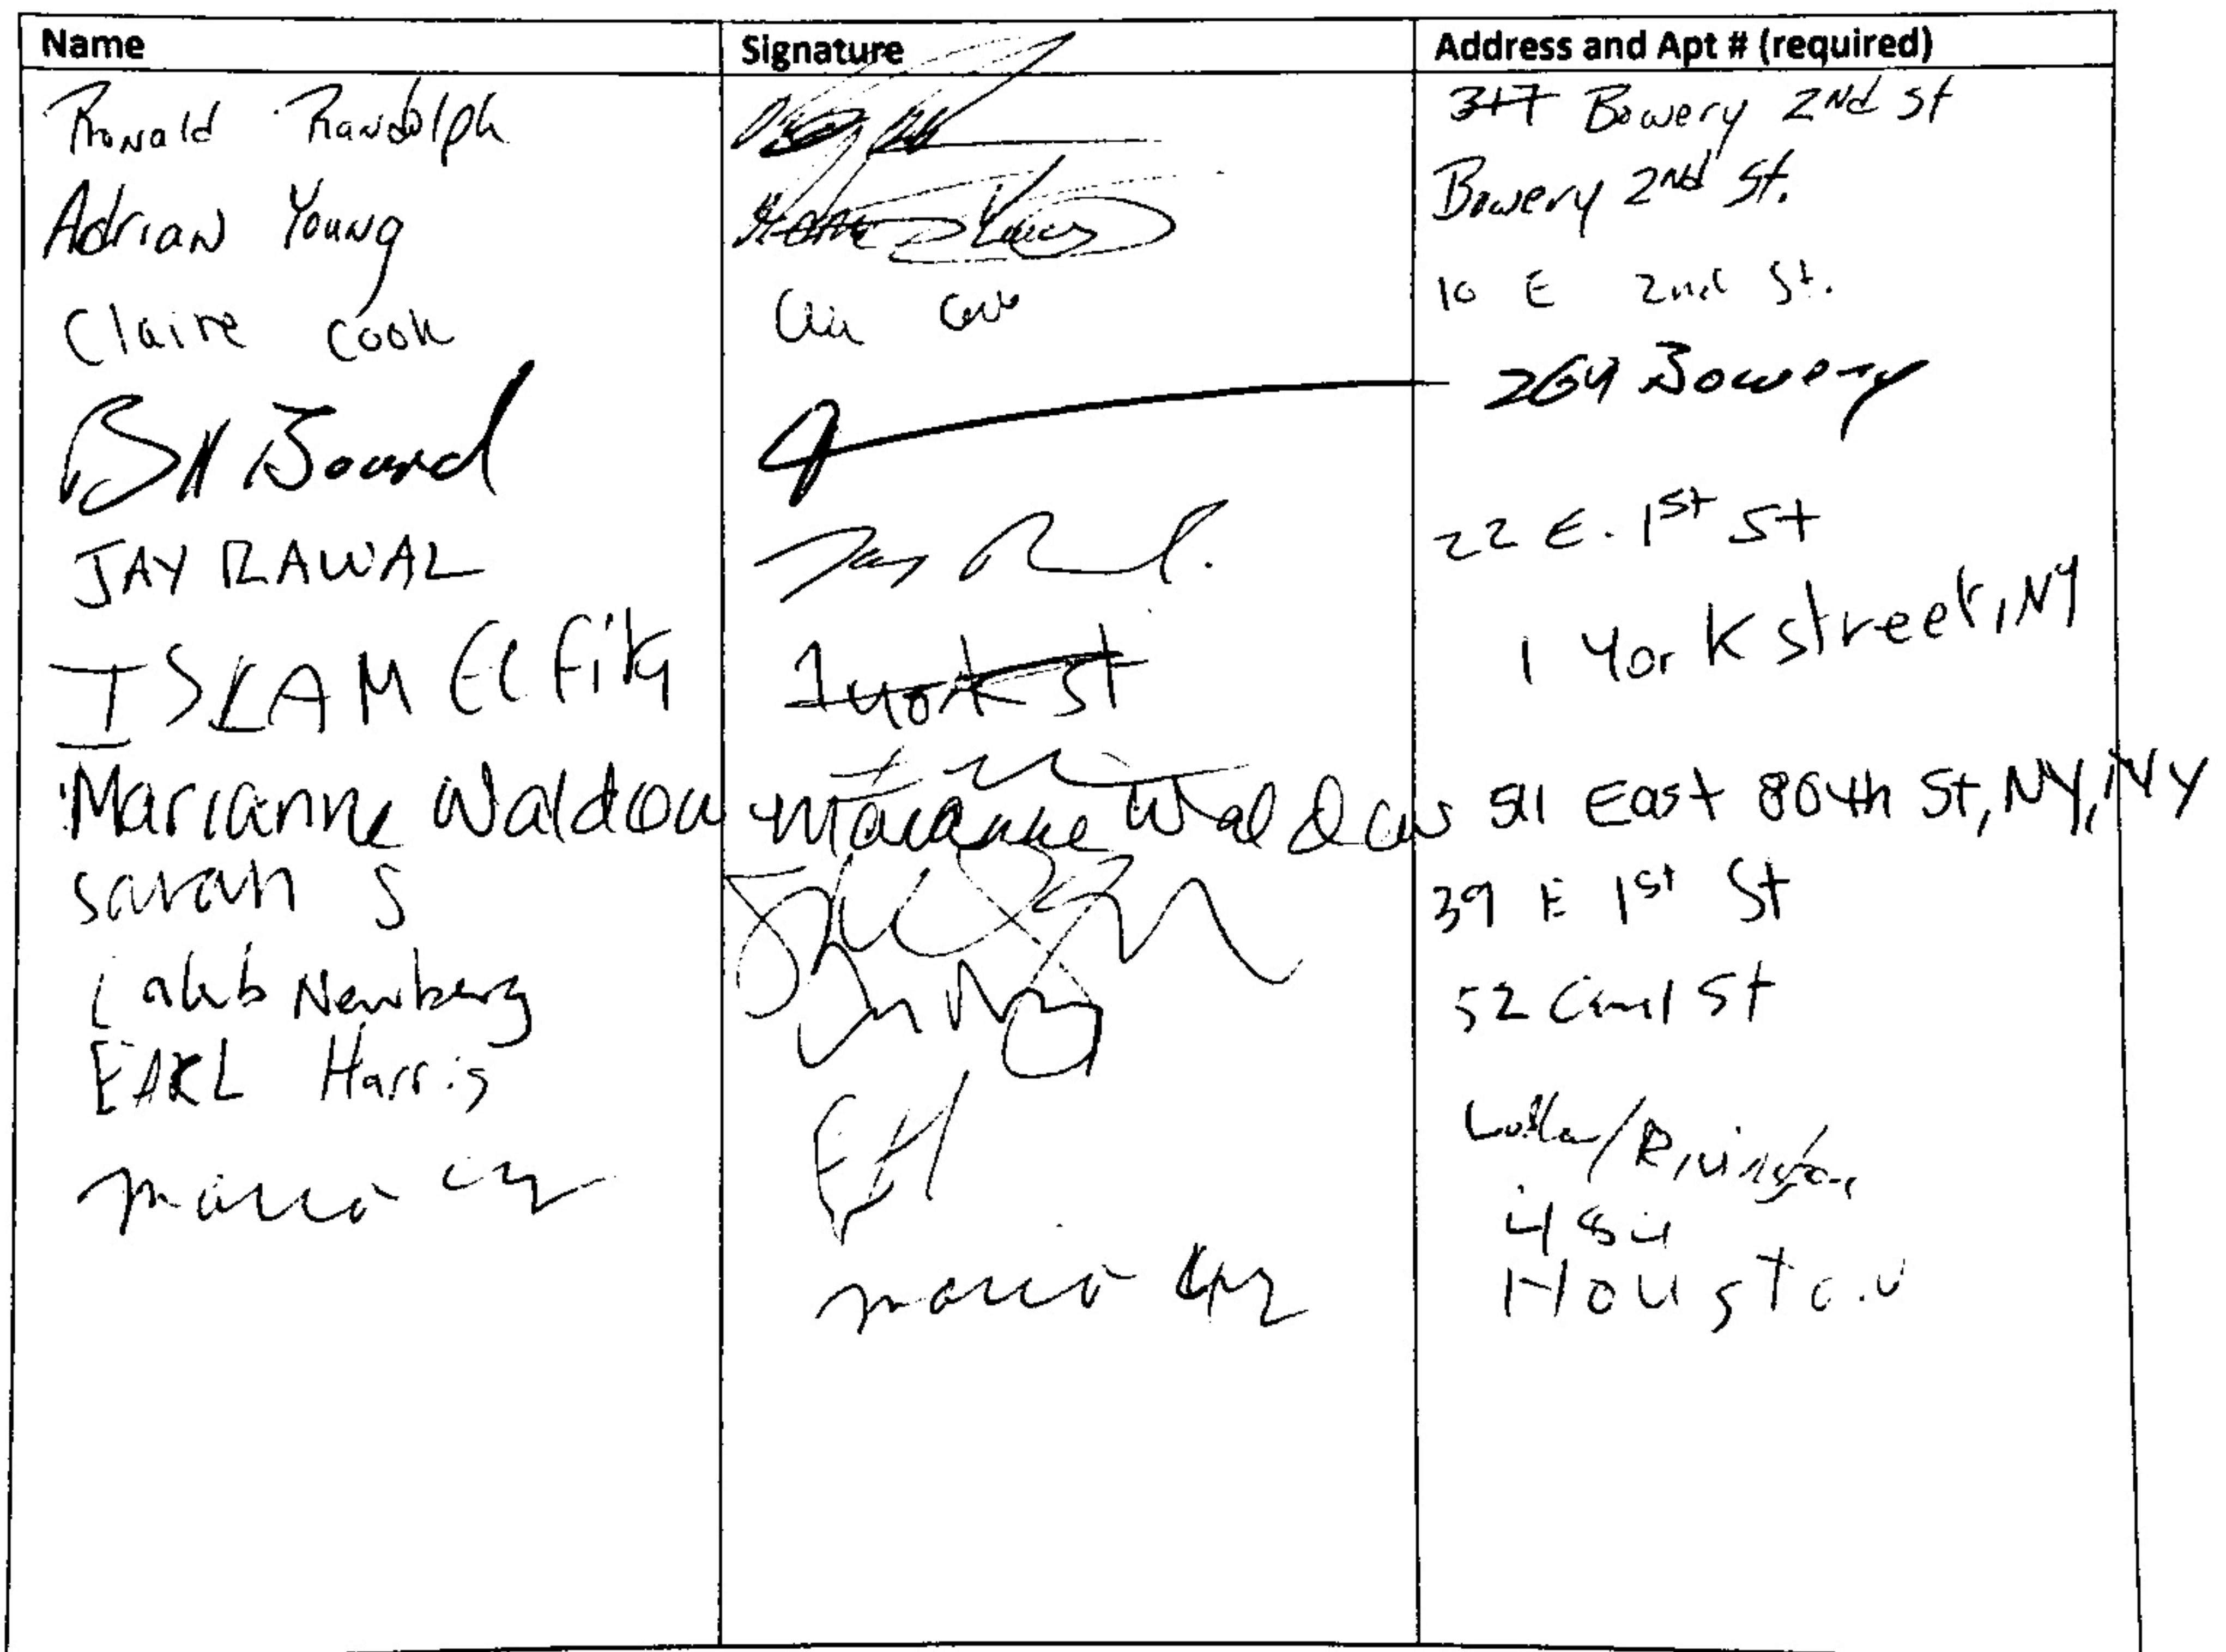 Name Signature Address and Apt # (required)
Ronald Randolph 347 Bowery 2nd St
Adrian Young Bowery 2nd St.
Claire Cook 10 E 2nd St.
264 Bowery
JAY RAWAL 22 E. 1st St
ISLAM 1 York street, NY
1 York St
Marianne Waldow Marianne Waldow 511 East 86th St, NY, NY
Sarah S 39 E 1st St
Caleb Newberg 52 Canal St
EARL Harris EH /Rivington
Mario 484
Mario Houston